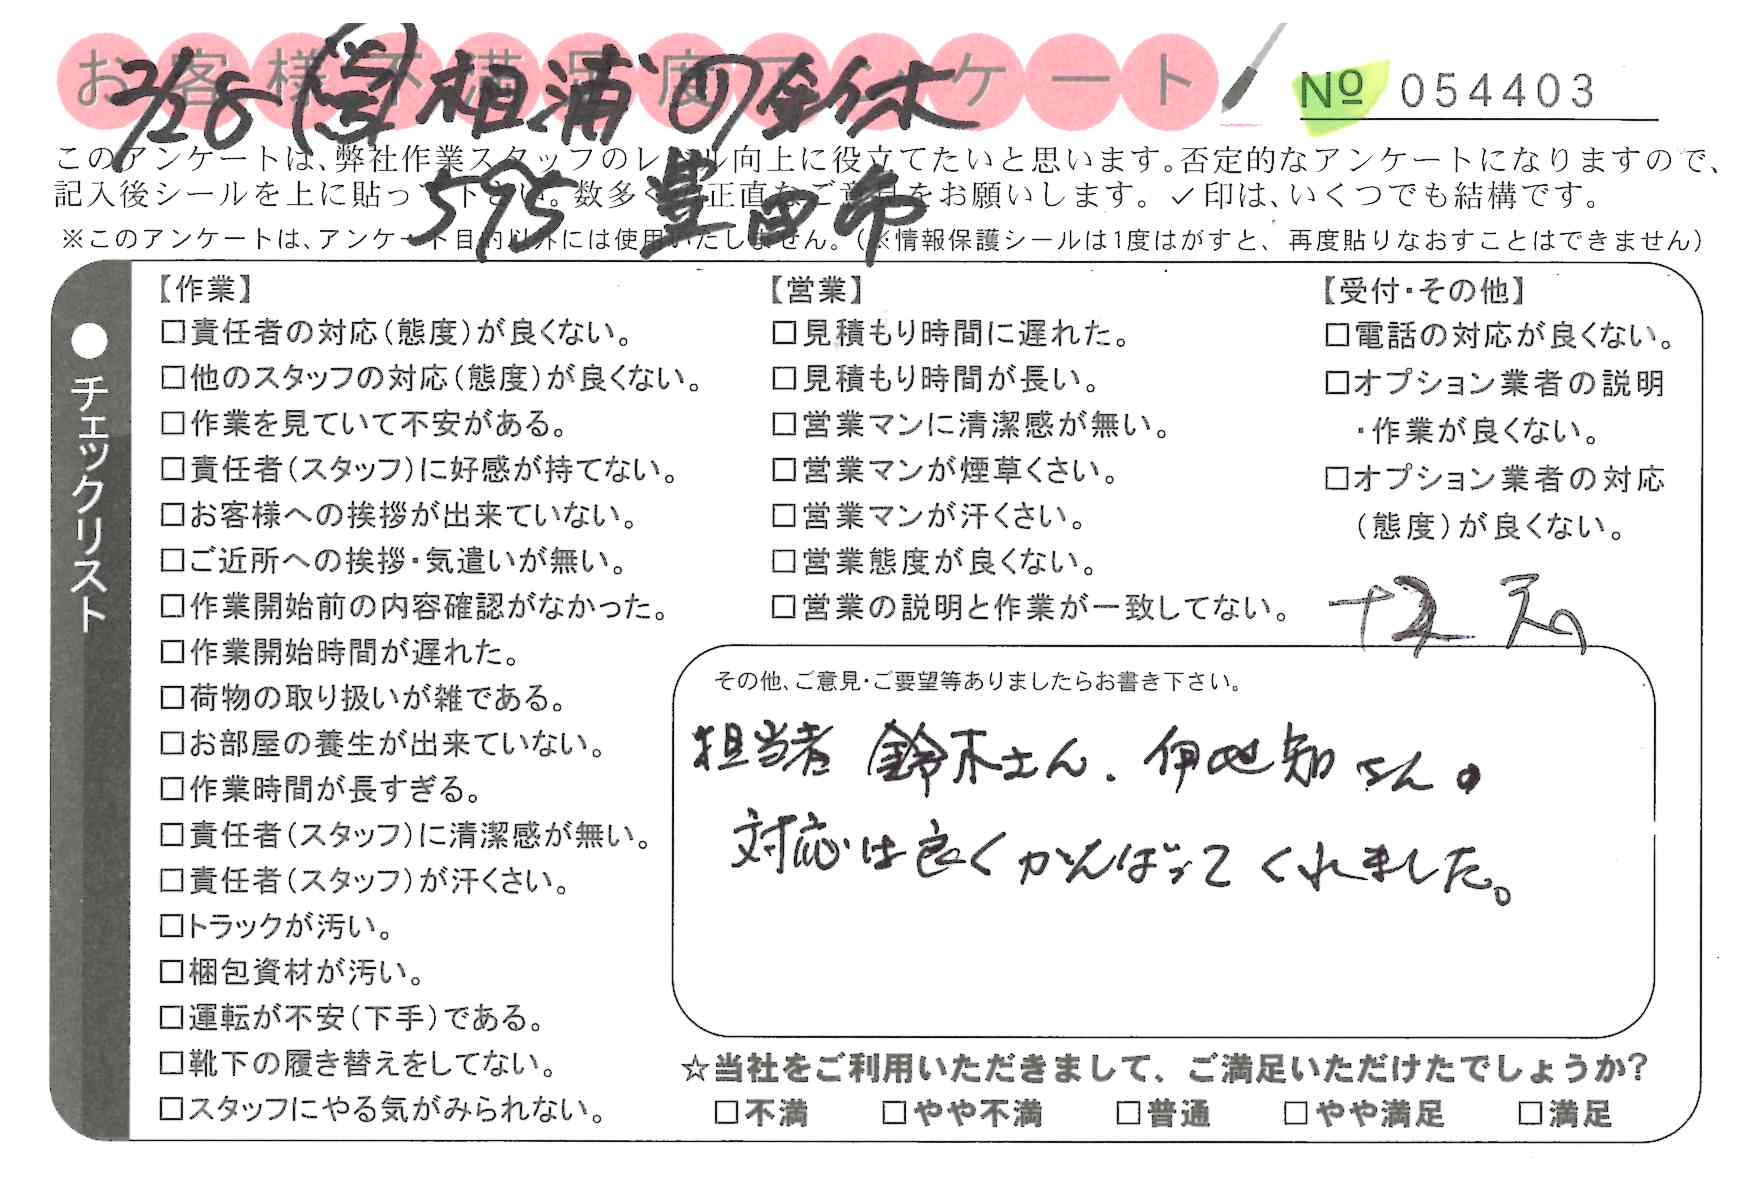 お客様不満足度アンケート
No 054403
2/28 (営)相浦 (リ)鈴木
595 豊田市
このアンケートは、弊社作業スタッフのレベル向上に役立てたいと思います。否定的なアンケートになりますので、
記入後シールを上に貼って下さい。数多くの正直なご意見をお願いします。✓印は、いくつでも結構です。
※このアンケートは、アンケート目的以外には使用いたしません。(※情報保護シールは1度はがすと、再度貼りなおすことはできません)
●チェックリスト
【作業】
□責任者の対応(態度)が良くない。
□他のスタッフの対応(態度)が良くない。
□作業を見ていて不安がある。
□責任者(スタッフ)に好感が持てない。
□お客様への挨拶が出来ていない。
□ご近所への挨拶・気遣いが無い。
□作業開始前の内容確認がなかった。
□作業開始時間が遅れた。
□荷物の取り扱いが雑である。
□お部屋の養生が出来ていない。
□作業時間が長すぎる。
□責任者(スタッフ)に清潔感が無い。
□責任者(スタッフ)が汗くさい。
□トラックが汚い。
□梱包資材が汚い。
□運転が不安(下手)である。
□靴下の履き替えをしてない。
□スタッフにやる気がみられない。
【営業】
□見積もり時間に遅れた。
□見積もり時間が長い。
□営業マンに清潔感が無い。
□営業マンが煙草くさい。
□営業マンが汗くさい。
□営業態度が良くない。
□営業の説明と作業が一致してない。
【受付・その他】
□電話の対応が良くない。
□オプション業者の説明
・作業が良くない。
□オプション業者の対応
(態度)が良くない。
その他、ご意見・ご要望等ありましたらお書き下さい。
担当者 鈴木さん、伊地知さんの
対応は良くがんばってくれました。
☆当社をご利用いただきまして、ご満足いただけたでしょうか?
□不満 □やや不満 □普通 □やや満足 □満足